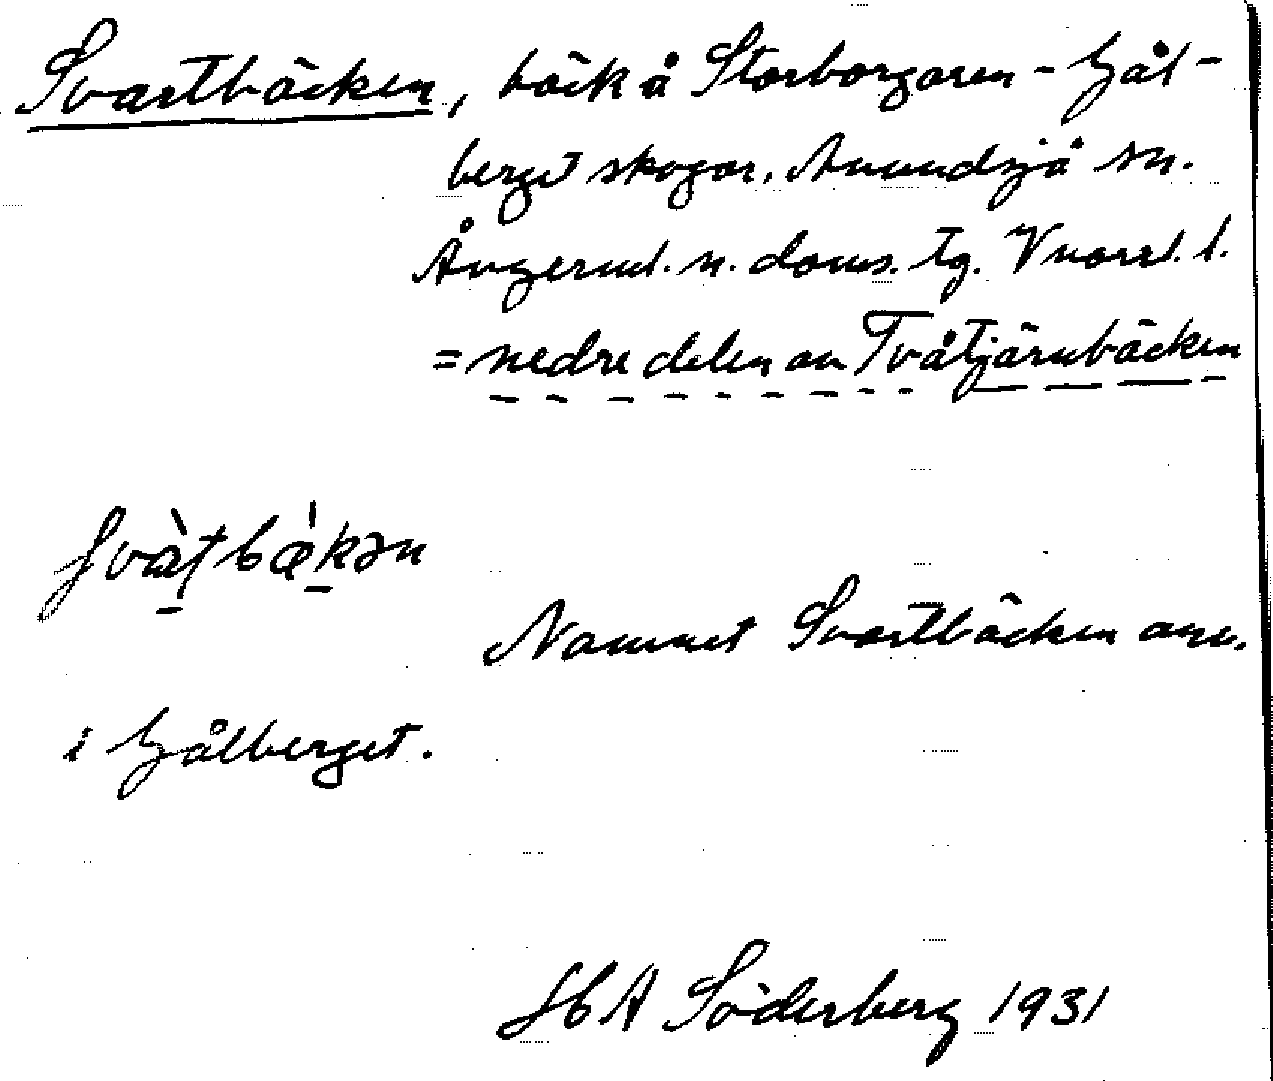 Svartbäcken, bäck å Storborgaren - Gål-
berget skogar. Anundsjö sn.
Ångerml. n. doms. tg. Vnorrl. l.
= nedre delen av Tvåtjärnbäcken
Namnet Svartbäcken anv.
i Gålberget.
H A Söderberg 1931